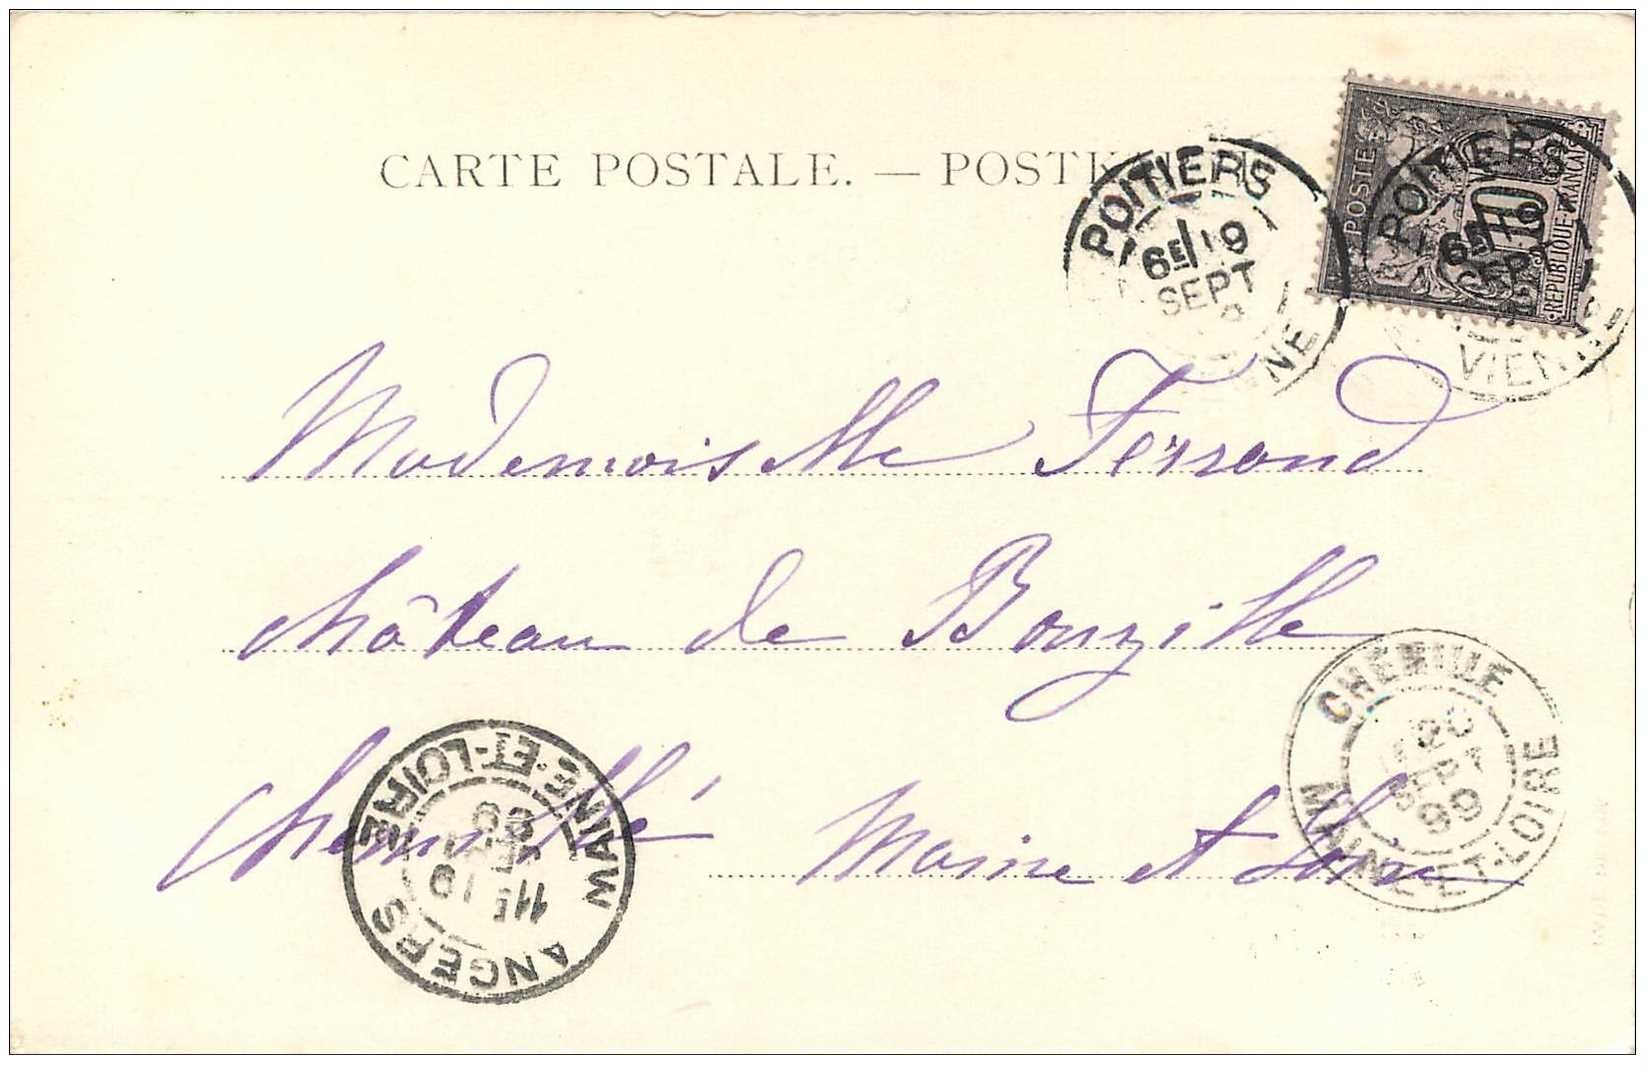 CARTE POSTALE. — POSTK
POITIERS
6E 19
SEPT
NE
POSTES
10
REPUBLIQUE FRANCAISE
POITIERS
6E 19
SEPT
VIENNE
Mademoiselle Ferrand
château de Bouzillé
Chemillé Maine et Loire
CHEMILLE
20
SEPT
99
MAINE-ET-LOIRE
ANGERS
11E 19
99
MAINE-ET-LOIRE